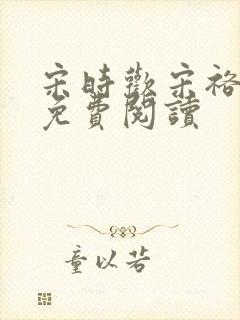 宋時歡宋裕
免費閱讀
童以若